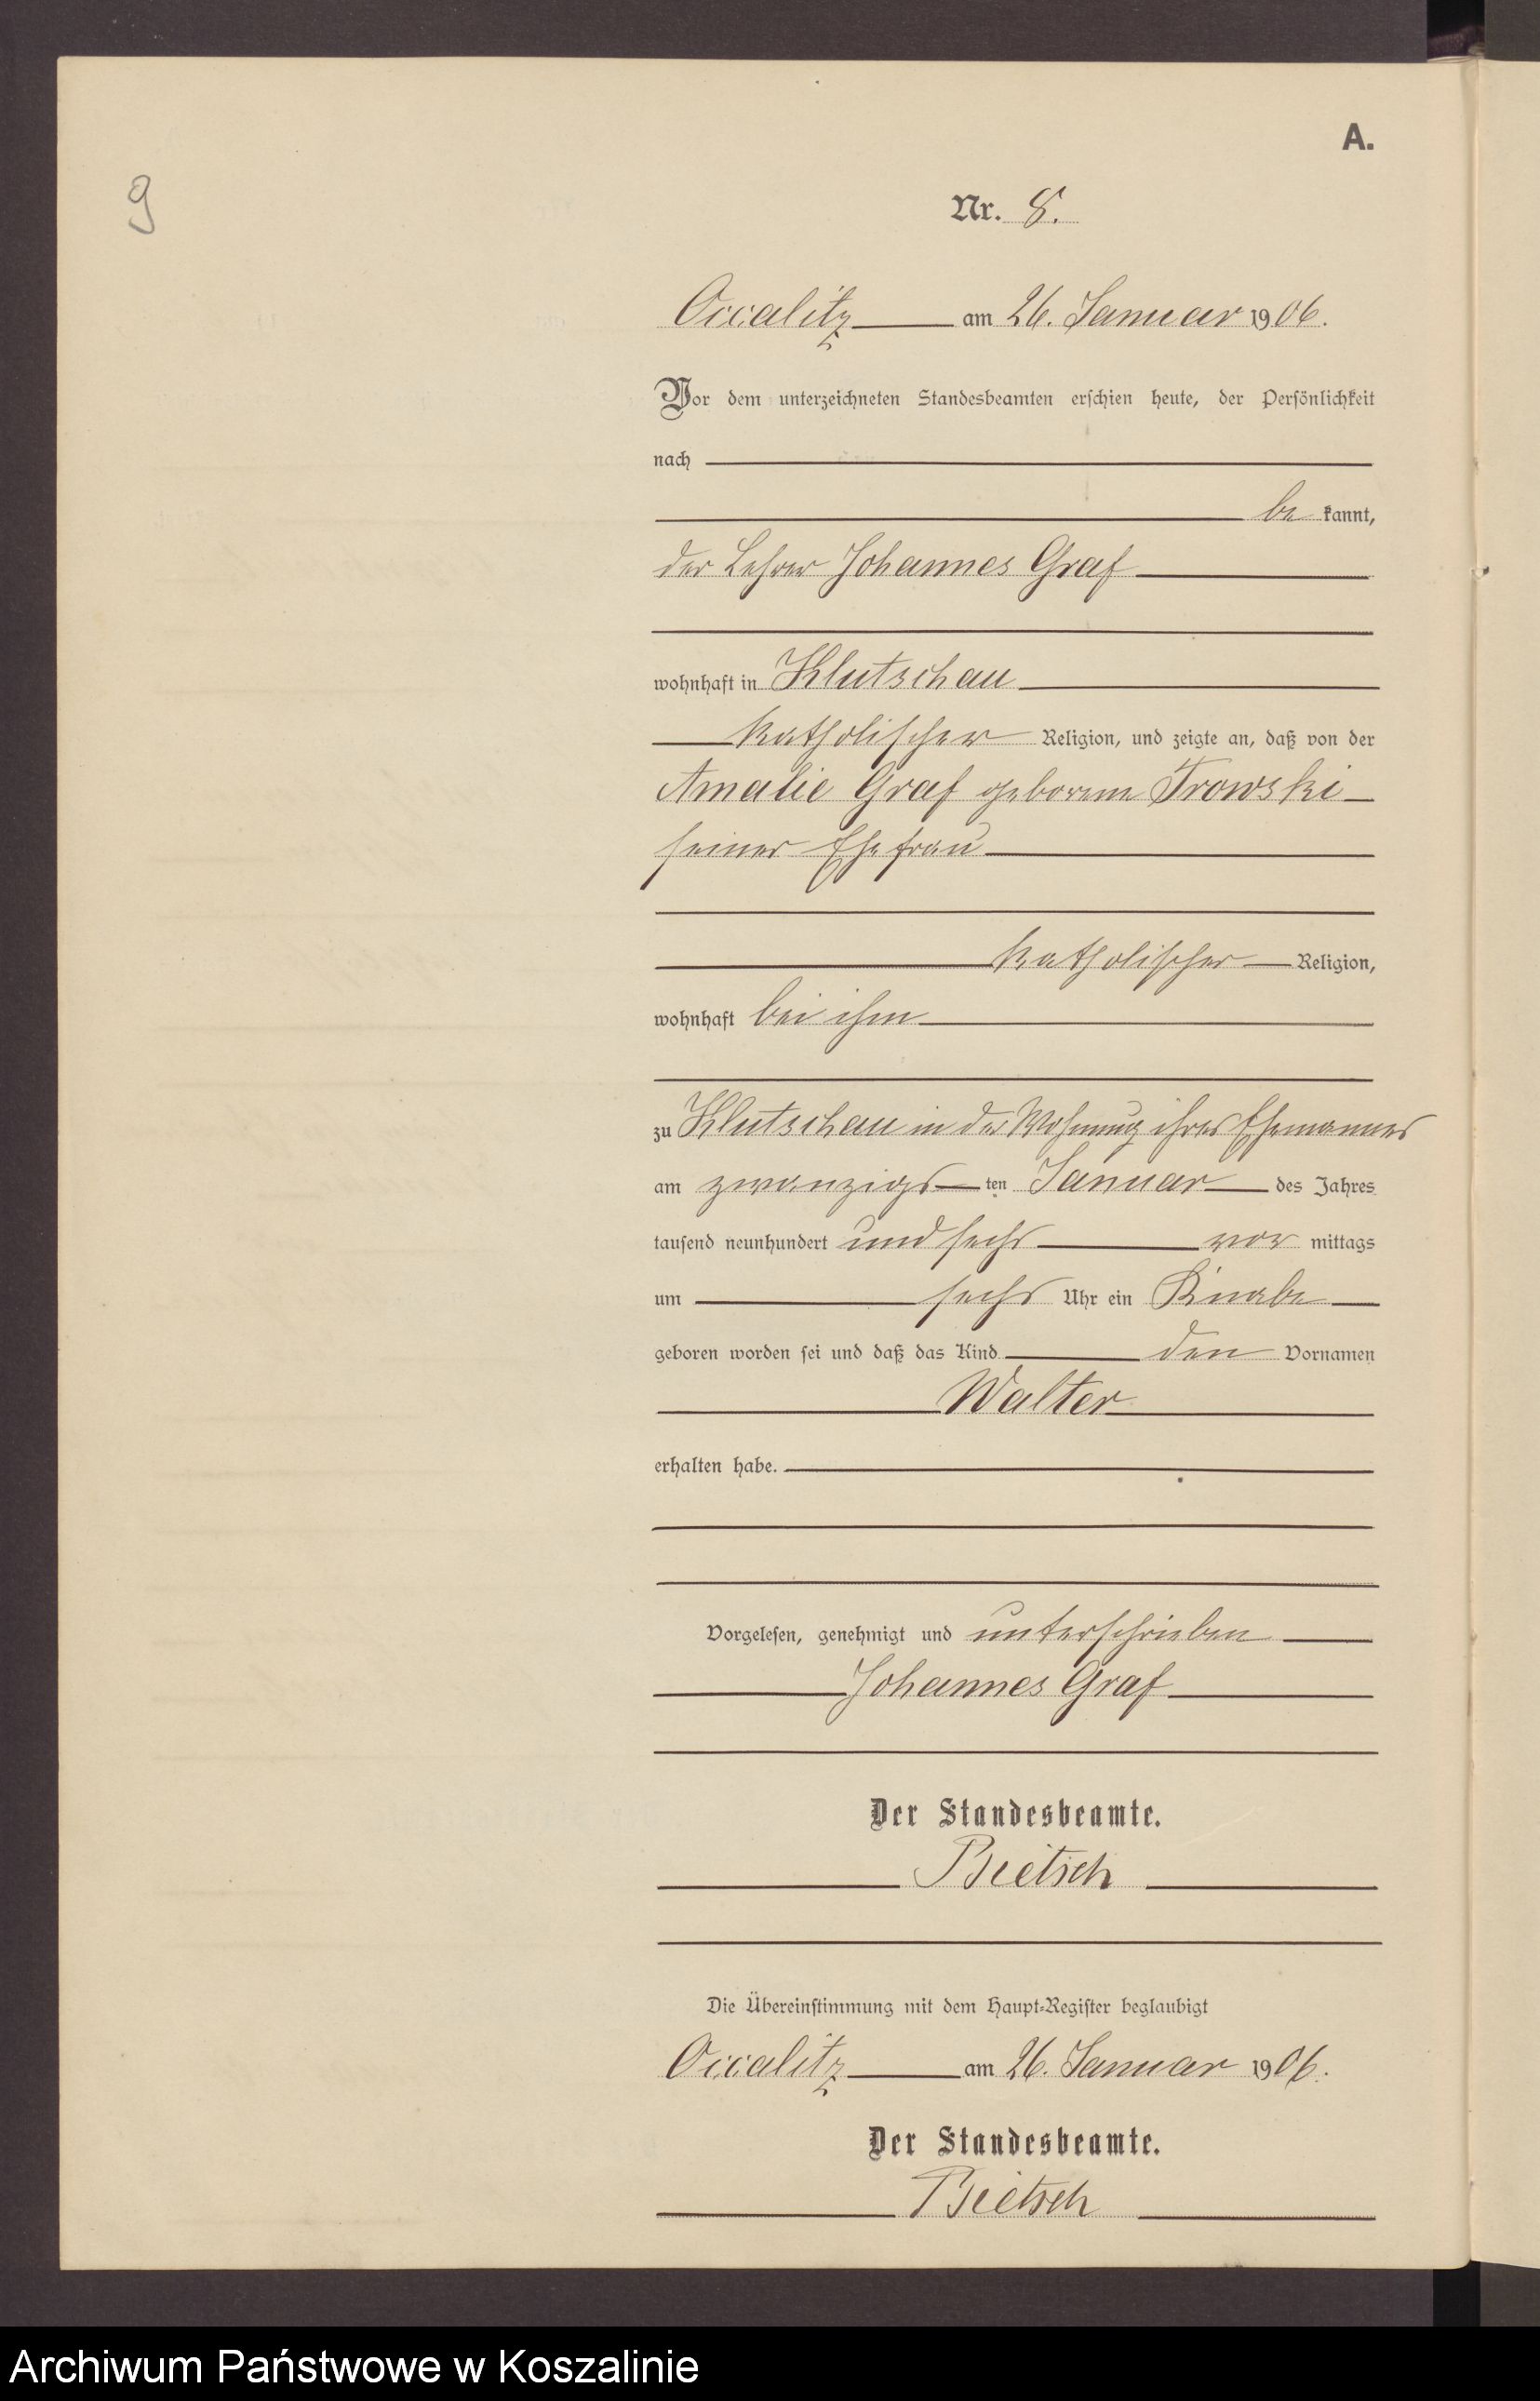 A.
9
Nr. 8.
Occalitz am 26. Januar 1906.
Vor dem unterzeichneten Standesbeamten erschien heute, der Persönlichkeit
nach
be kannt,
der Lehrer Johannes Graf
wohnhaft in Klutschau
katholischer Religion, und zeigte an, daß von der
Amalie Graf geborene Trowski
seiner Ehefrau
katholischer Religion,
wohnhaft bei ihm
zu Klutschau in der Wohnung ihres Ehemannes
am zwanzigs ten Januar des Jahres
tausend neunhundert und sechs vor mittags
um sechs Uhr ein Knabe
geboren worden sei und daß das Kind den Vornamen
Walter
erhalten habe.
Vorgelesen, genehmigt und unterschrieben
Johannes Graf
Der Standesbeamte.
Bietsch
Die Übereinstimmung mit dem Haupt-Register beglaubigt
Occalitz am 26. Januar 1906.
Der Standesbeamte.
Bietsch
Archiwum Państwowe w Koszalinie